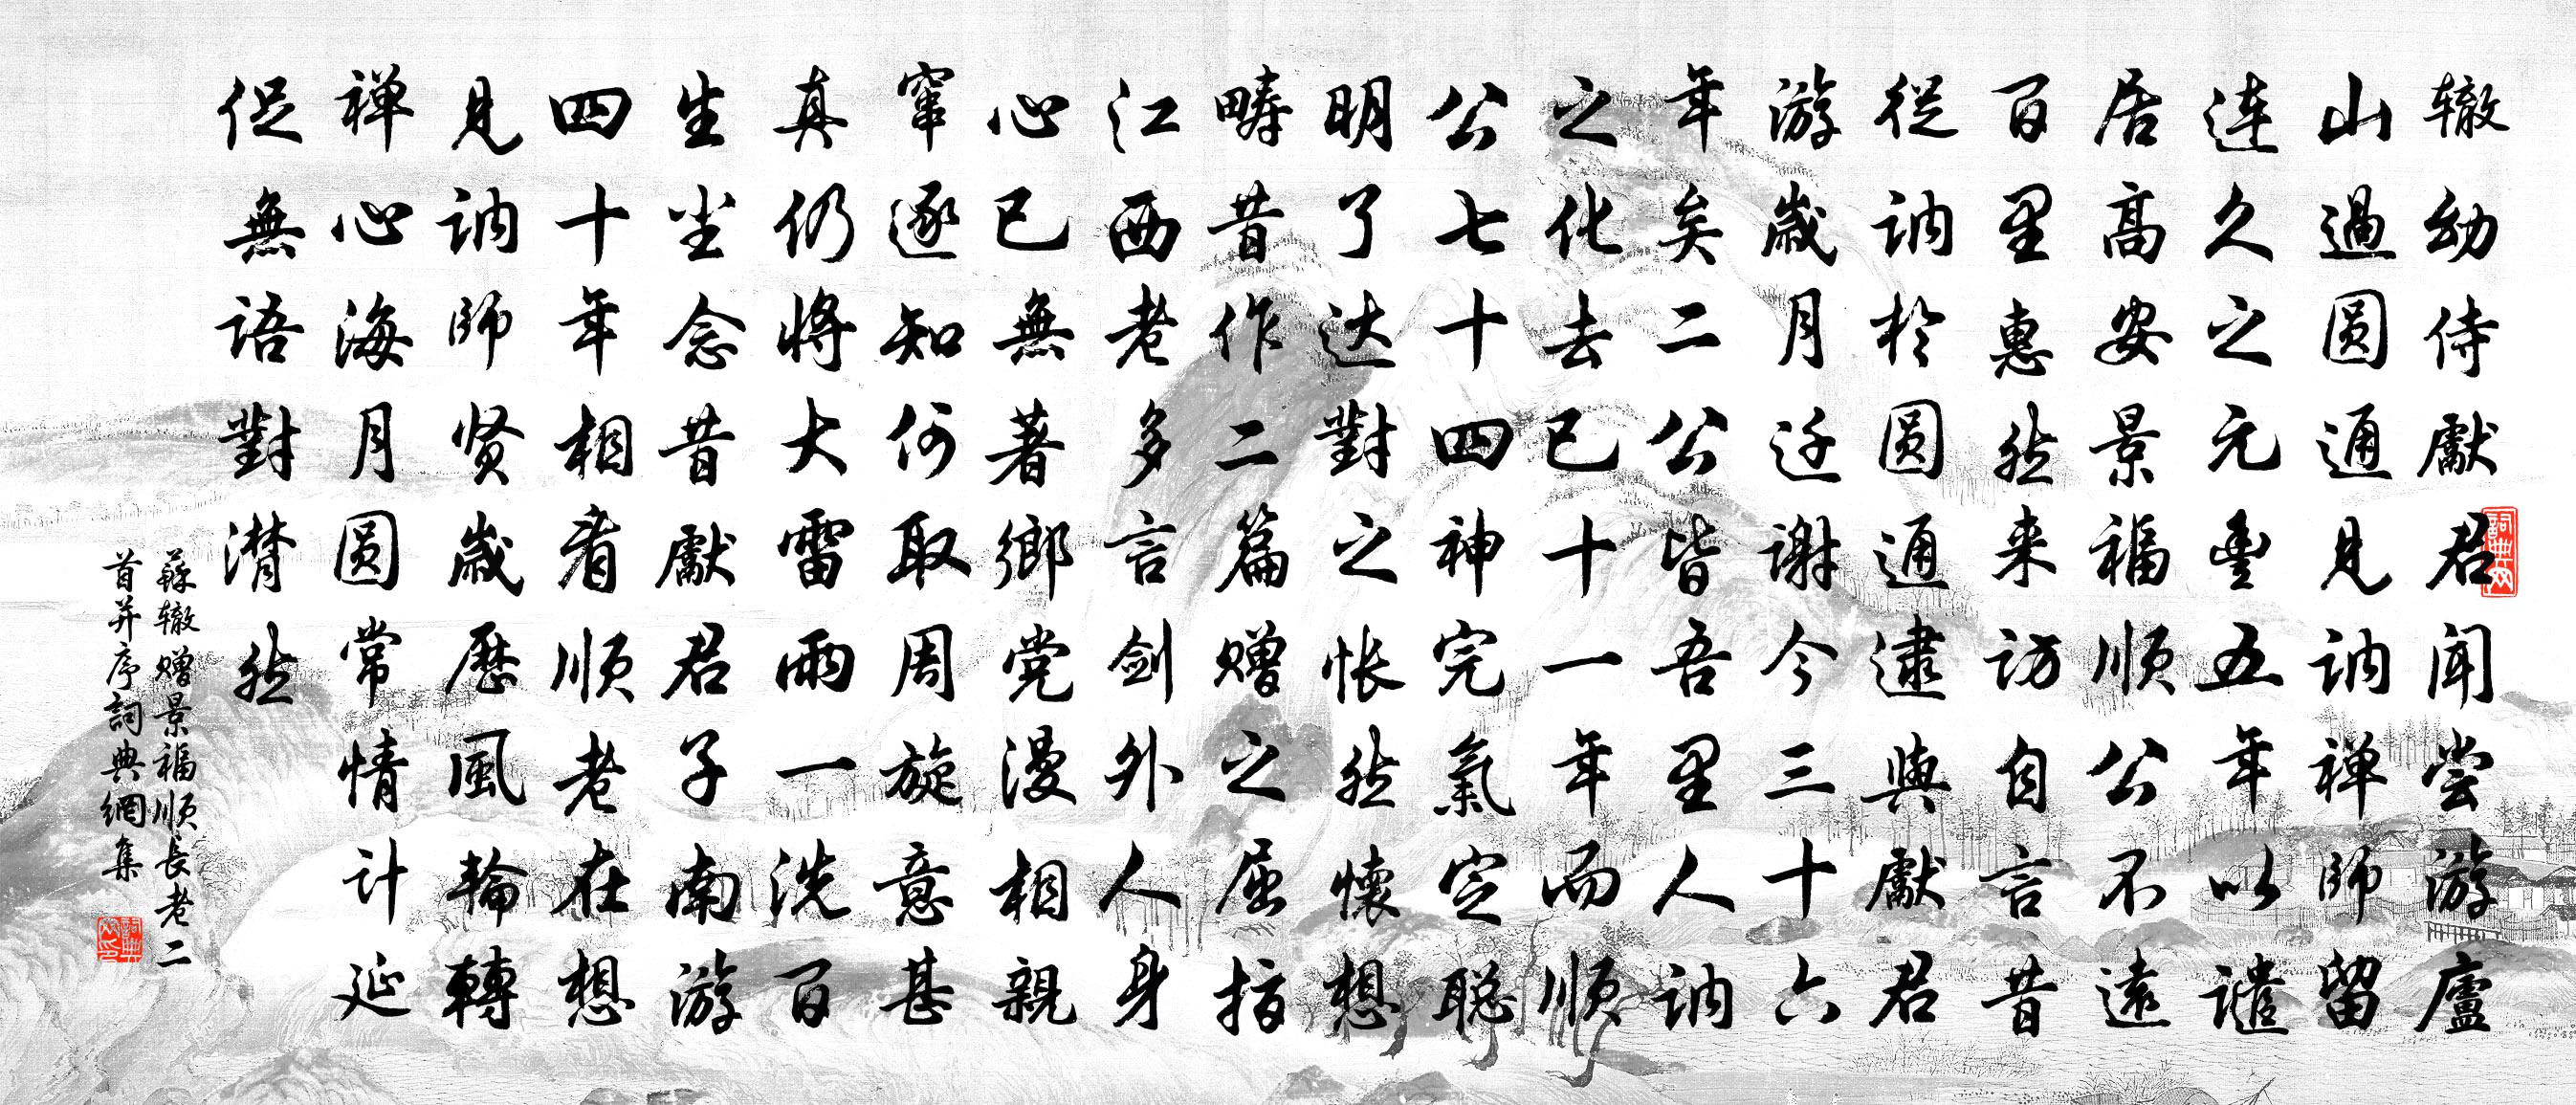 辙幼侍獻君闻尝游廬
山過圆通見讷禅師留
連久之元豊五年以谴
居高安景福順公不遠
百里惠然来访自言昔
從讷於圆通逮與獻君
游歲月迁谢今三十六
年矣二公皆吾里人讷
之化去已十一年而順
公七十四神完氣定聪
明了达對之怅然懷想
畴昔作二篇赠之屈指
江西老多言剑外人身
心已無著鄉党漫相親
窜逐知何取周旋意甚
真仍将大雷雨一洗百
生尘念昔獻君子南游
四十年相看順老在想
見讷師贤歲歷風輪轉
禅心海月圆常情计延
促無語對潸然
蘇辙赠景福順長老二
首并序詞典網集
詞典网
詞典网印